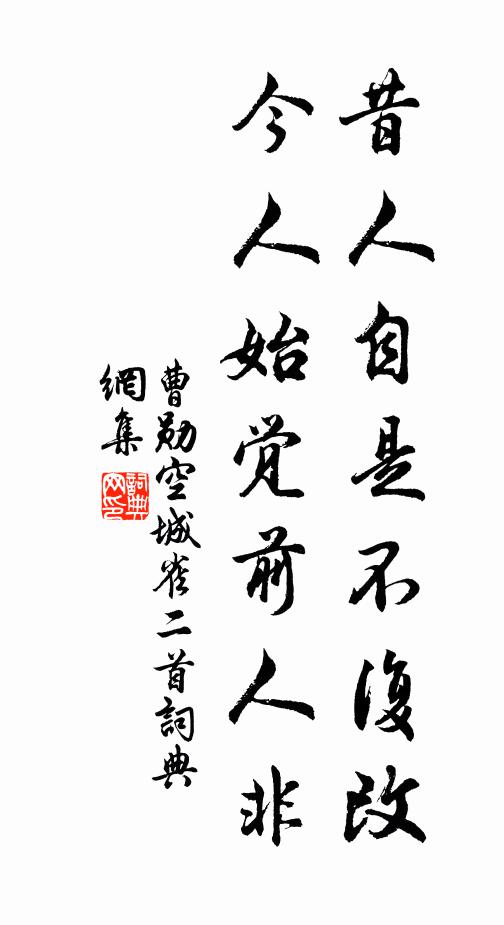 昔人自是不復改
今人始觉前人非
曹勛空城雀二首詞典
網集
詞典
网印